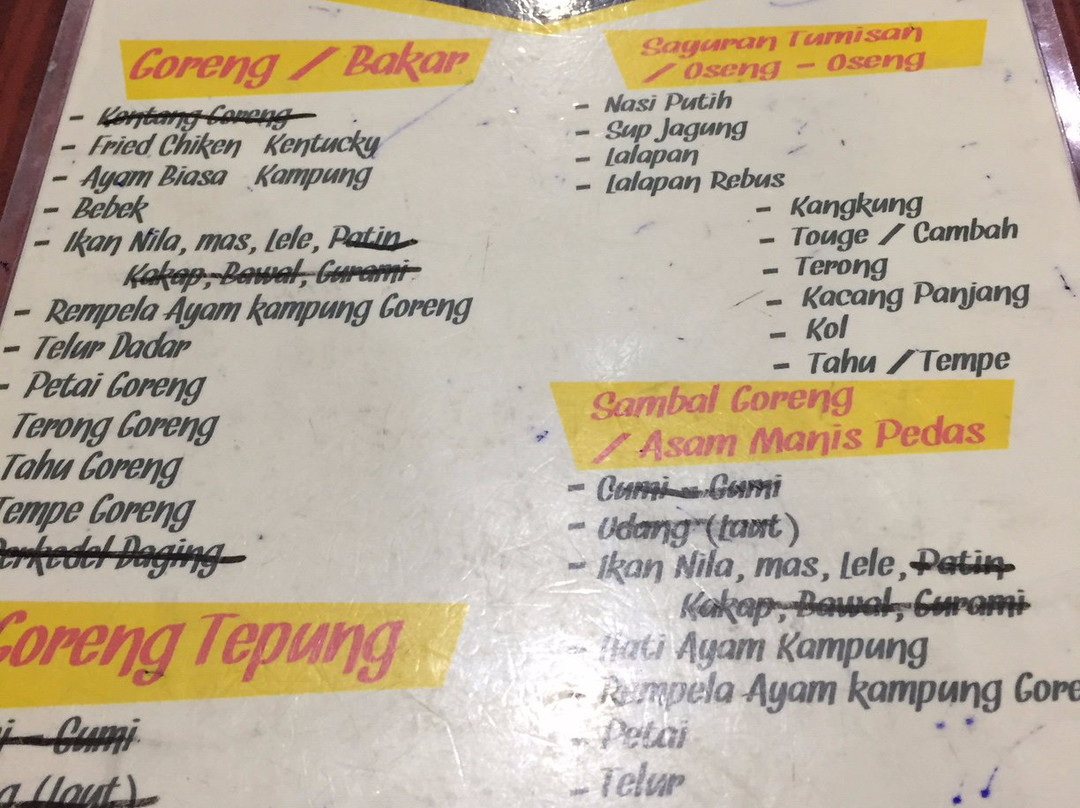 Goreng / Bakar
- Kentang Goreng
- Fried Chiken Kentucky
- Ayam Biasa Kampung
- Bebek
- Ikan Nila, mas, Lele, Patin
Kakap, Bawal, Gurami
- Rempela Ayam kampung Goreng
- Telur Dadar
- Petai Goreng
Terong Goreng
Tahu Goreng
Tempe Goreng
Perkedel Daging
Goreng Tepung
- Cumi
(laut)
Sayuran Tumisan
/ Oseng - Oseng
- Nasi Putih
- Sup Jagung
- Lalapan
- Lalapan Rebus
- Kangkung
- Touge / Cambah
- Terong
- Kacang Panjang
- Kol
- Tahu / Tempe
Sambal Goreng
/ Asam Manis Pedas
- Cumi - Cumi
- Udang (Laut)
- Ikan Nila, mas, Lele, Patin
Kakap, Bawal, Gurami
- Hati Ayam Kampung
- Rempela Ayam kampung Gore
- Petai
- Telur